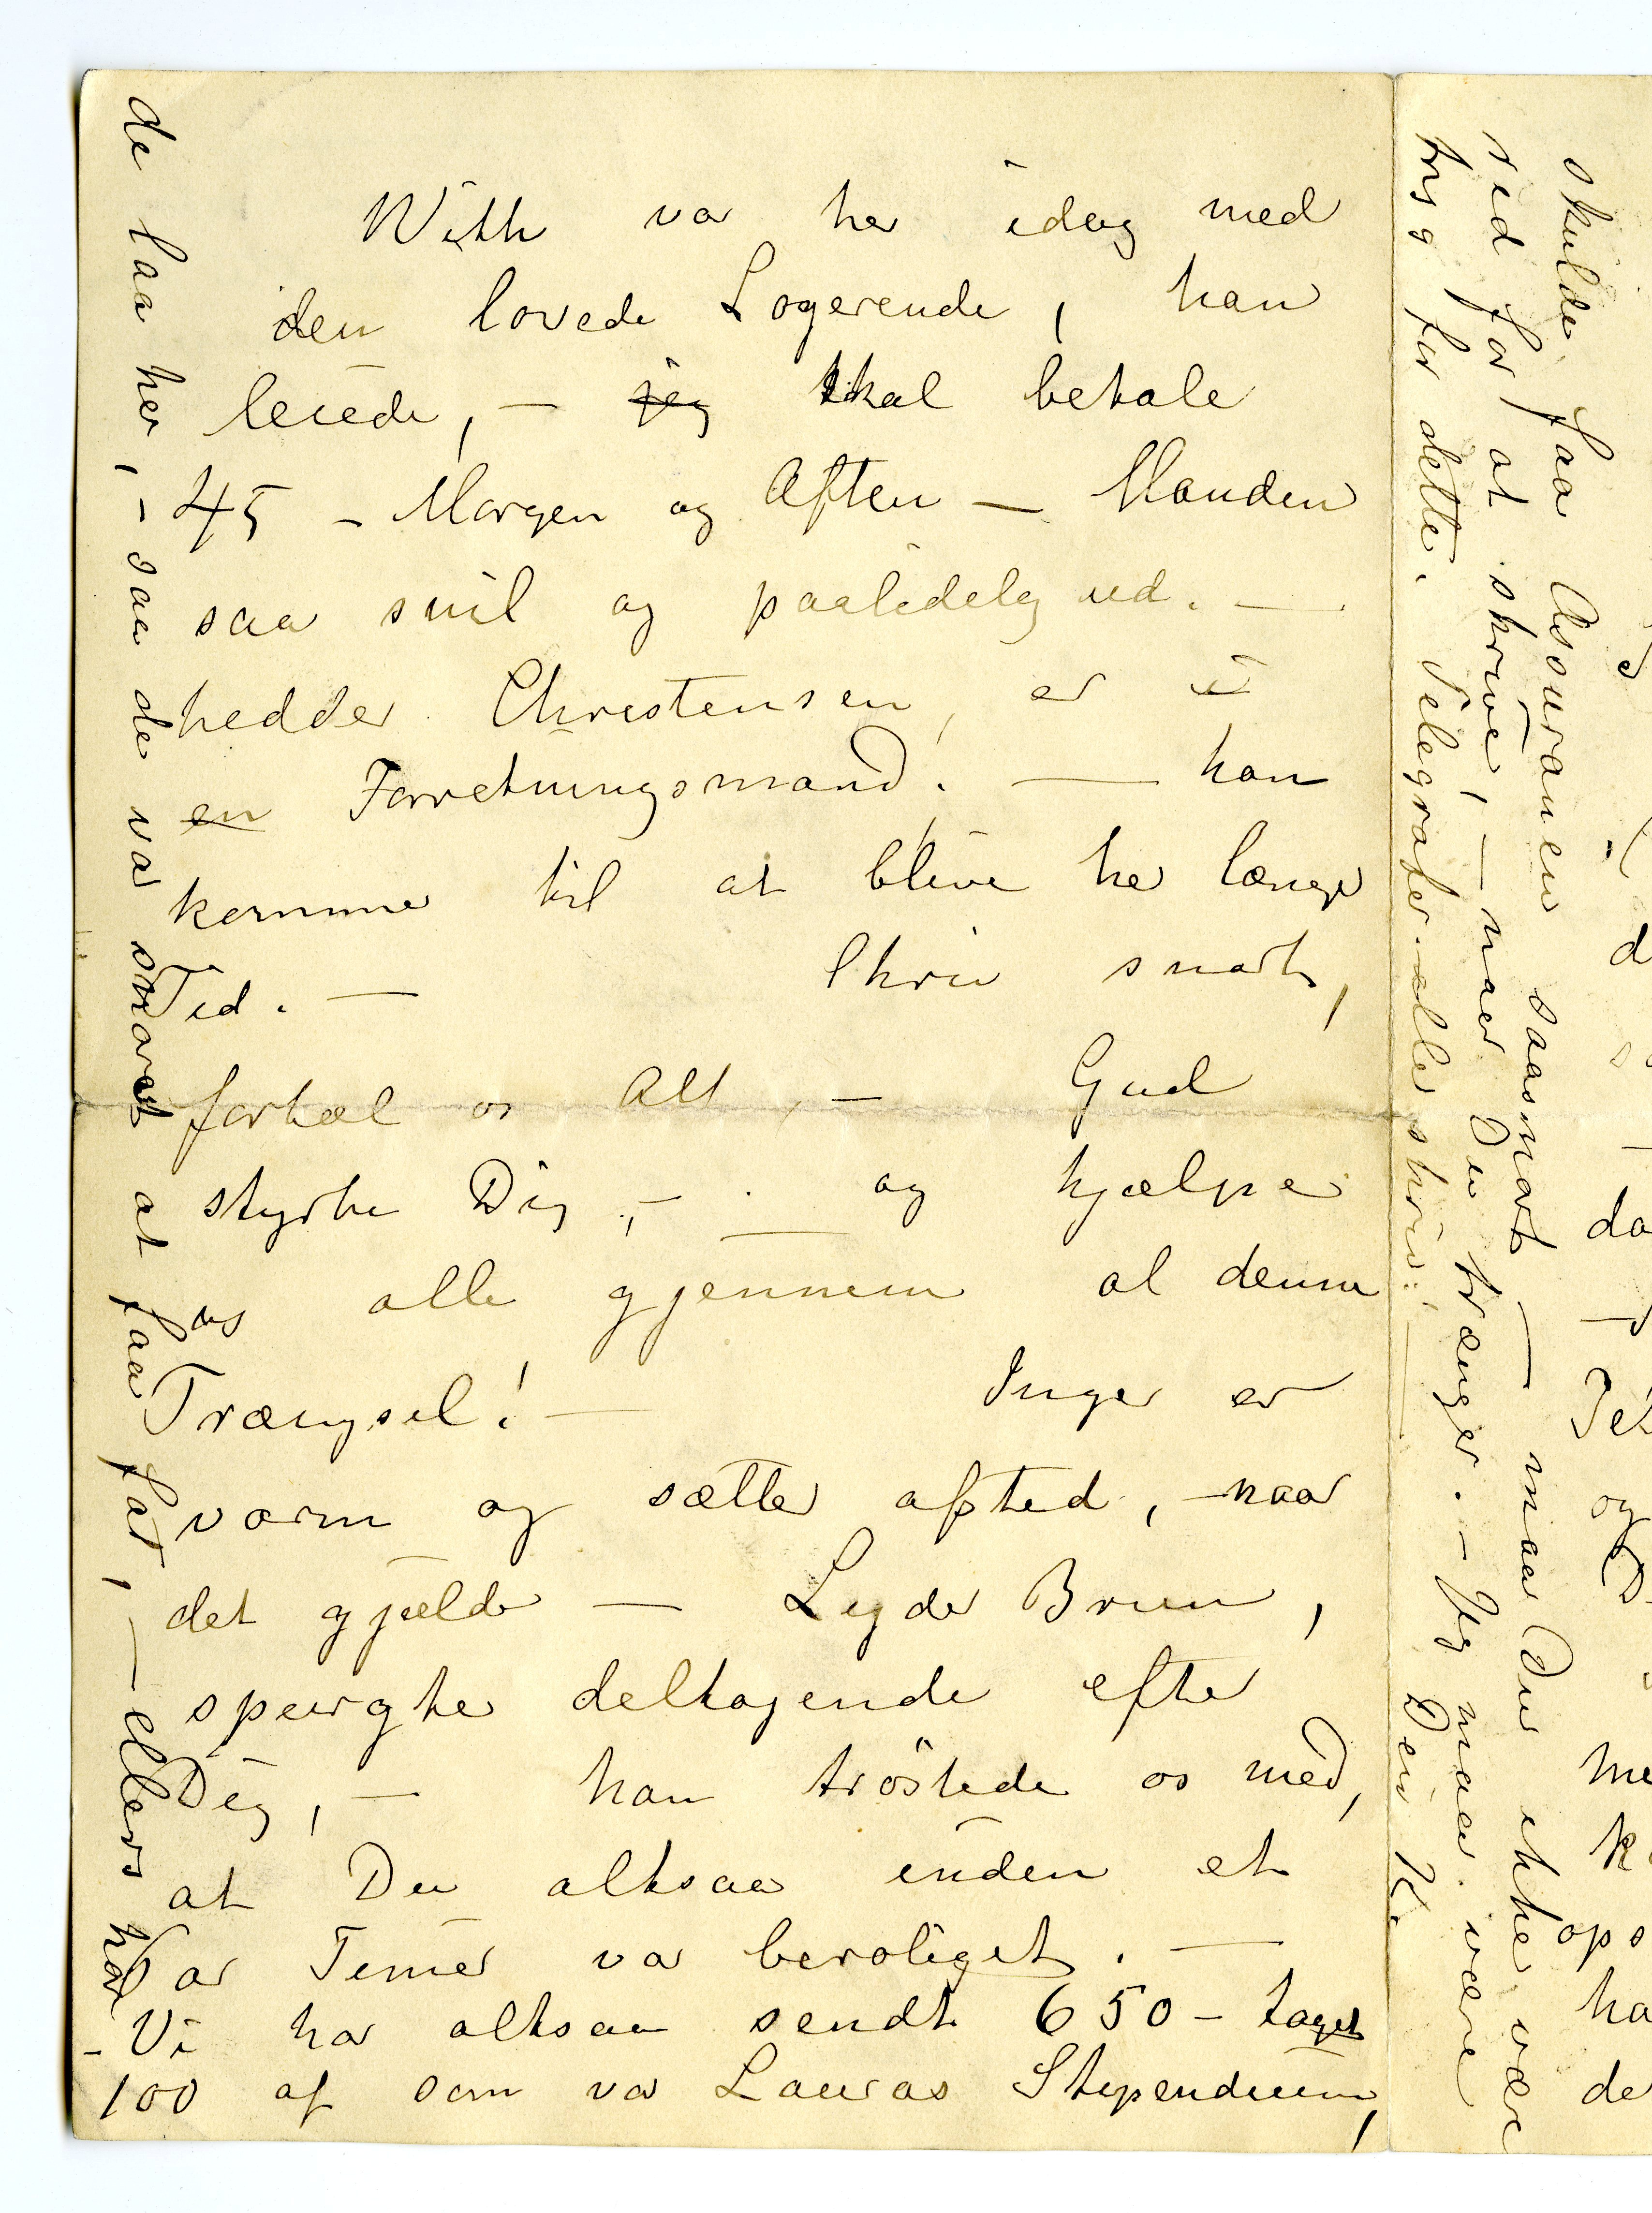 With var her idag med
den lovede Logerende, han
leiede, – jeg skal betale
45 – Morgen og Aften – Manden
saa snil og paalidelig ud. –
hedder Christensen, er i
en Forretningsmand. – han
kommer til at blive her længe
Tid. – Skriv snart,
fortæl os Alt, – Gud
styrke Dig, – og hjælpe
os alle gjennem al denne
Trængsel! – Inger er
varm og sætter afsted, naar
det gjælder – Lyder Brun,
spurgte deltagende efter
Dig, – han trøstede os med,
at Du altsaa inden et
Par Timer var beroliget. –
– Vi har altsaa sendt 650 – taget
100 af som var Lauras Stipendium,
de laa her, – saa de var snarest at faa fat, – ellers har
skulde faa Assurancen saasnart – maa Du ikke være
ræd for at skrive, – naar Du trænger. – Jeg maa være
tryg for dette. Telegrafer eller skriv. – Din K.
d
da
og
me
k
ops
ha
de